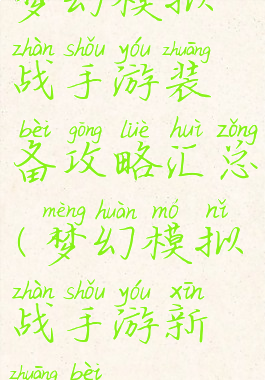 梦幻模拟
zhàn shǒu yóu zhuāng
战手游装
bèi gōng lüè huì zǒng
备攻略汇总
mèng huàn mó nǐ
(梦幻模拟
zhàn shǒu yóu xīn
战手游新
zhuāng bèi